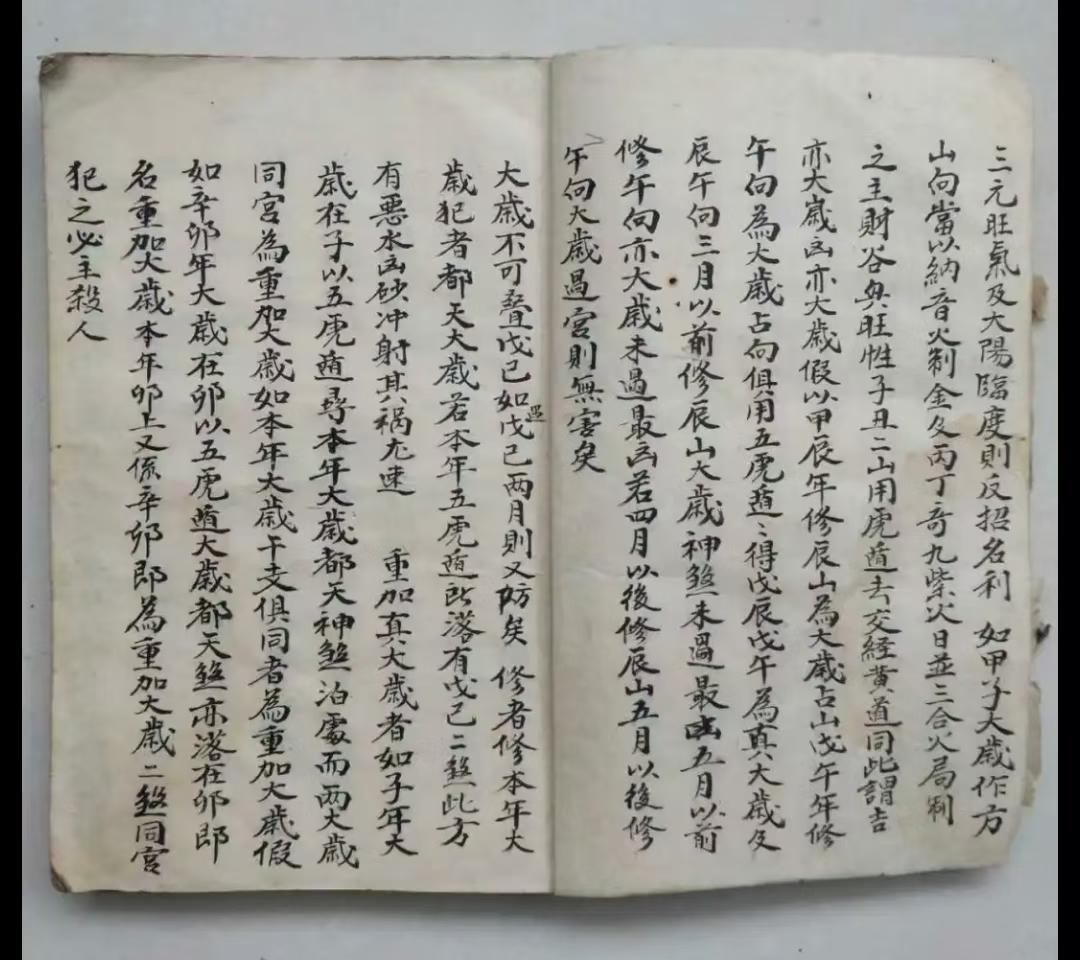 三元旺氣及太陽臨度則反招名利 如甲子大歲作方
山向當以納音火制金及丙丁奇九紫火日並三合火局制
之主財谷與旺性子丑二山用虎遁去交経黄道同此謂吉
亦大歲凶亦大歲假以甲辰年修辰山為大歲占山戊午年修
午向為大歲占向俱用五虎遁〻得戊辰戊午為真大歲及
辰午向三月以前修辰山大歲神煞未過最凶五月以前
修午向亦大歲未過最凶若四月以後修辰山五月以後修
午向大歲過宮則無害矣
大歲不可叠戊己如遇戊己两月則又防矣 修者修本年大
歲犯者都天大歲若本年五虎遁所落有戊己二煞此方
有惡水凶砂冲射其禍尤速 重加真大歲者如子年大
歲在子以五虎遁尋本年大歲都天神煞泊處而两大歲
同宫為重加大歲如本年大歲干支俱同者為重加大歲假
如辛卯年大歲在卯以五虎遁大歲都天煞亦落在卯即
名重加大歲本年卯上又係辛卯即為重加大歲二煞同宮
犯之必主殺人